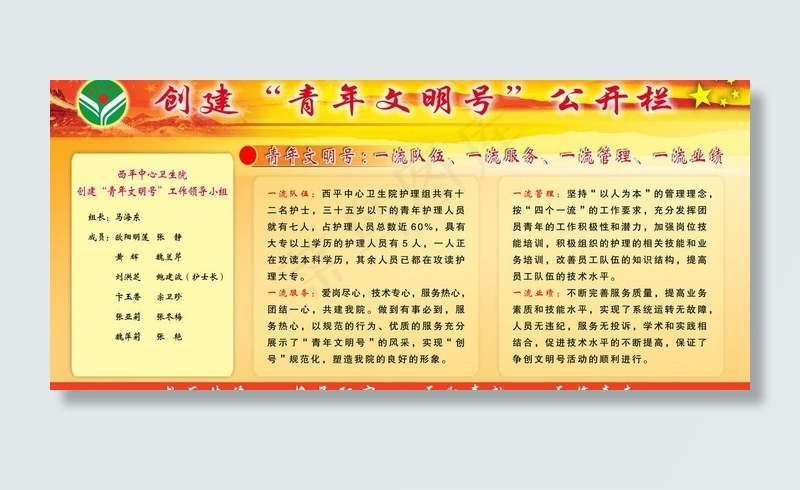 创建“青年文明号”公开栏
青年文明号：一流队伍、一流服务、一流管理、一流业绩
西平中心卫生院
创建“青年文明号”工作领导小组
组长：马海东
成员：欧阳明莲 张 静
黄 辉 魏兰芹
刘洪芝 鲍建波（护士长）
卞玉香 宗卫珍
张亚莉 张冬梅
魏萍莉 张 艳
一流队伍：西平中心卫生院护理组共有十
二名护士，三十五岁以下的青年护理人员
就有七人，占护理人员总数近60%，具有
大专以上学历的护理人员有5人，一人正
在攻读本科学历，其余人员已都在攻读护
理大专。
一流服务：爱岗尽心，技术专心，服务热心，
团结一心，共建我院。做到有事必到，服
务热心，以规范的行为、优质的服务充分
展示了“青年文明号”的风采，实现“创
号”规范化，塑造我院的良好的形象。
一流管理：坚持“以人为本”的管理理念，
按“四个一流”的工作要求，充分发挥团
员青年的工作积极性和潜力，加强岗位技
能培训，积极组织的护理的相关技能和业
务培训，改善员工队伍的知识结构，提高
员工队伍的技术水平。
一流业绩：不断完善服务质量，提高业务
素质和技能水平，实现了系统运转无故障，
人员无违纪，服务无投诉，学术和实践相
结合，促进技术水平的不断提高，保证了
争创文明号活动的顺利进行。